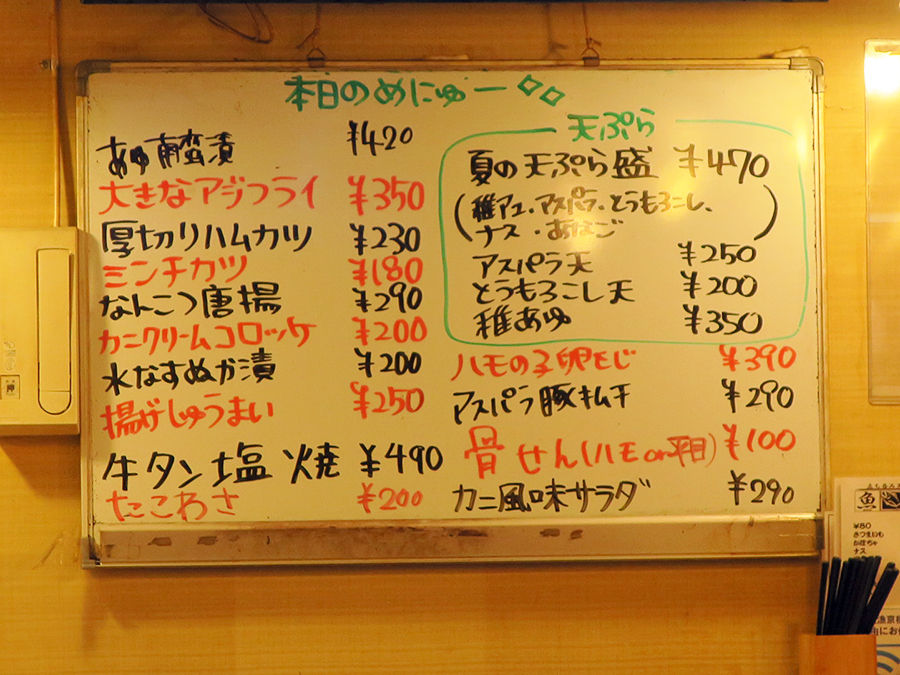 本日のめにゅー
あゆ南蛮漬 ¥420
大きなアジフライ ¥350
厚切りハムカツ ¥230
ミンチカツ ¥180
なんこつ唐揚 ¥290
カニクリームコロッケ ¥200
水なすぬか漬 ¥200
揚げしゅうまい ¥250
牛タン塩焼 ¥490
たこわさ ¥200
天ぷら
夏の天ぷら盛 ¥470
(稚アユ・アスパラ・とうもろこし、
ナス・あなご)
アスパラ天 ¥250
とうもろこし天 ¥200
稚あゆ ¥350
ハモの子卵とじ ¥390
アスパラ豚キムチ ¥290
骨せん(ハモor平目) ¥100
カニ風味サラダ ¥290
魚
¥80
さつまいも
かぼちゃ
ナス